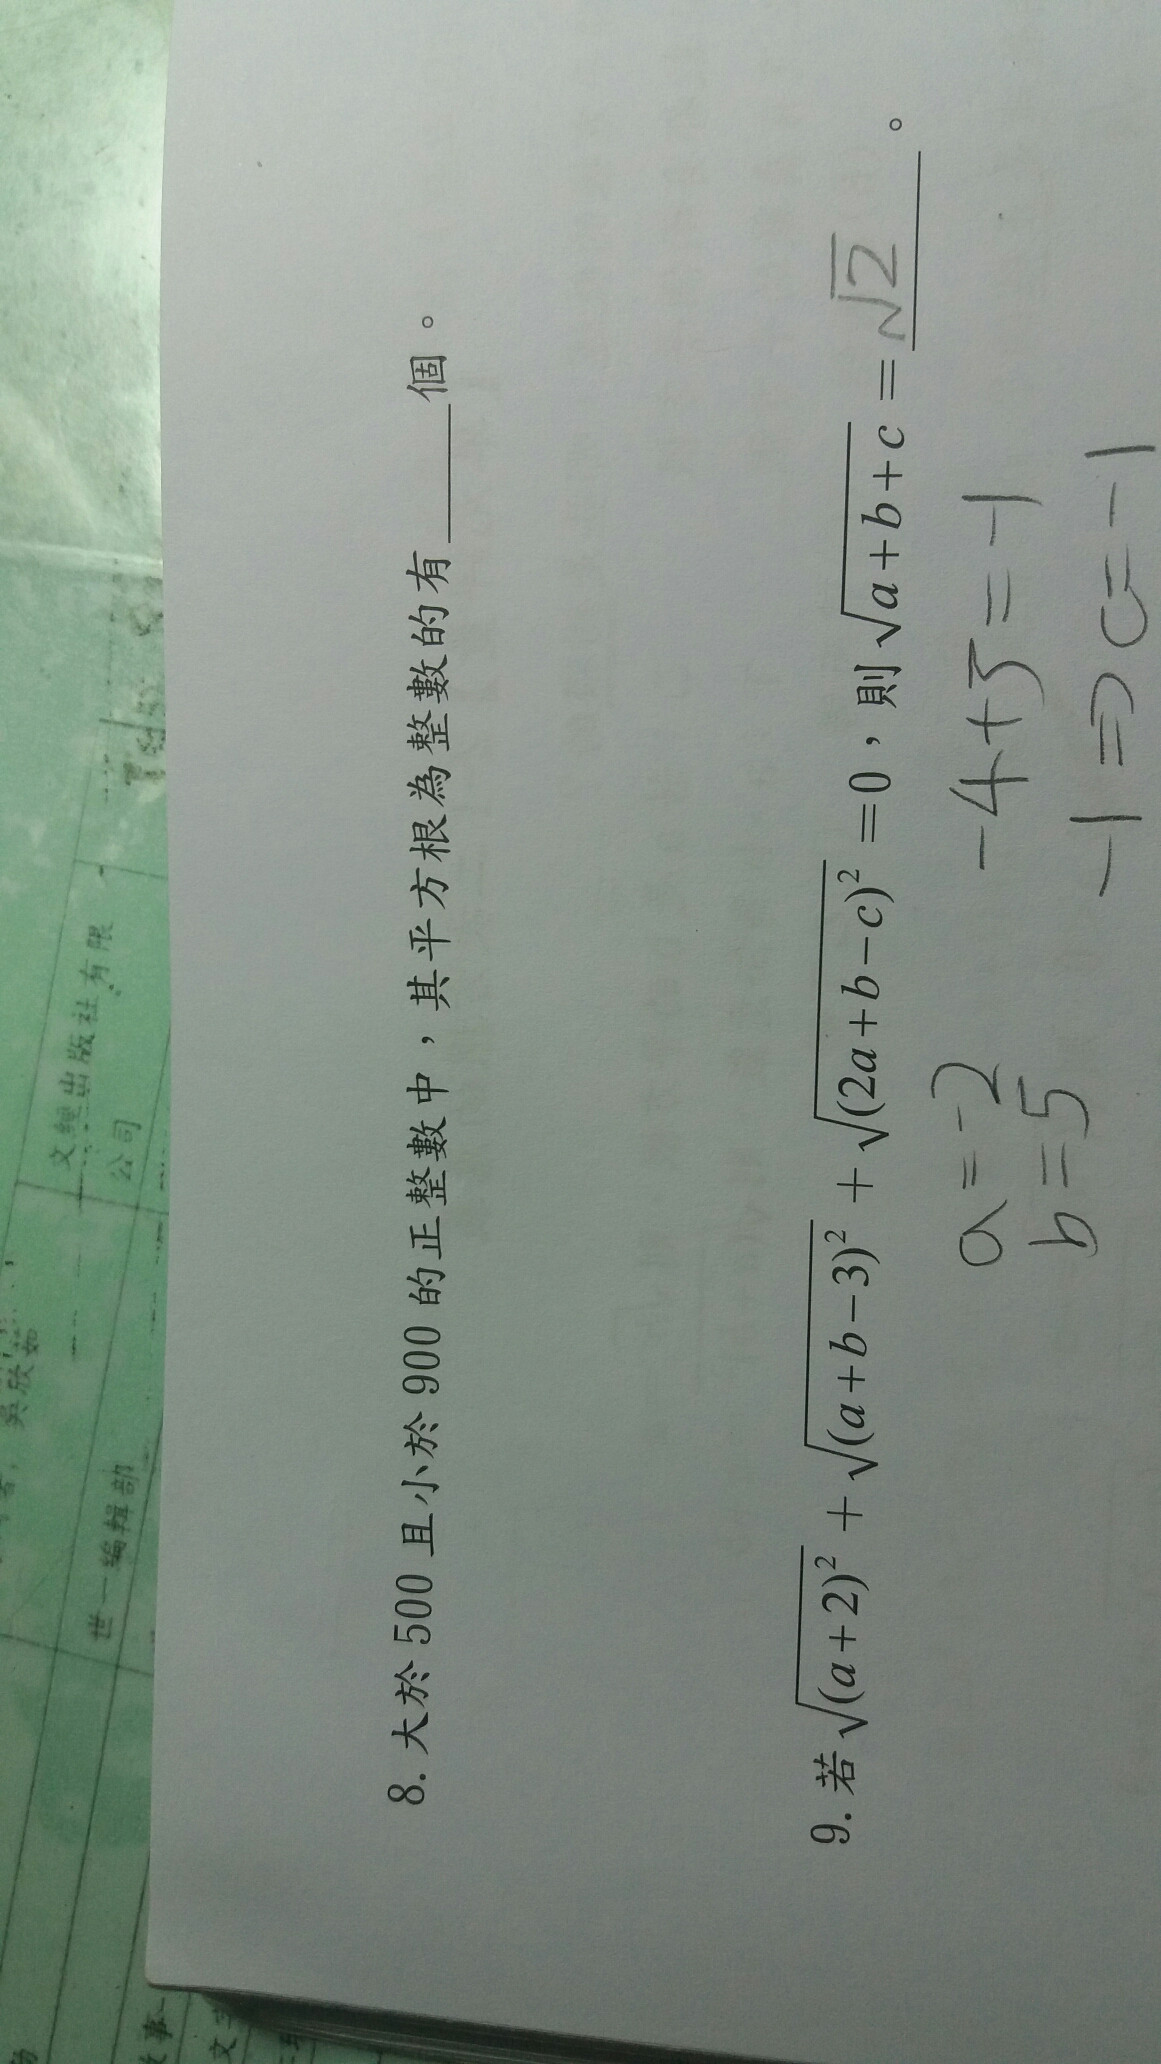 文經出版社有限
公司
世一編輯部
8. 大於 500 且小於 900 的正整數中，其平方根為整數的有______個。
9. 若 √(a+2)² + √(a+b−3)² + √(2a+b−c)² = 0，則 √a+b+c = √2 。
a=-2
b=5
-4+5=-1
-1=>c=-1